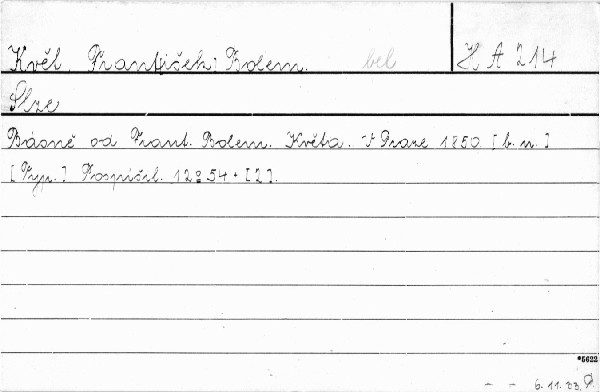 Květ, František Bolem. bel H A 214
Slze
Básně od Frant. Bolem. Květa. V Praze 1850 [b. n.]
[Typ.] Pospíšil. 12º 54 + [2].
*5622
6.11.83.